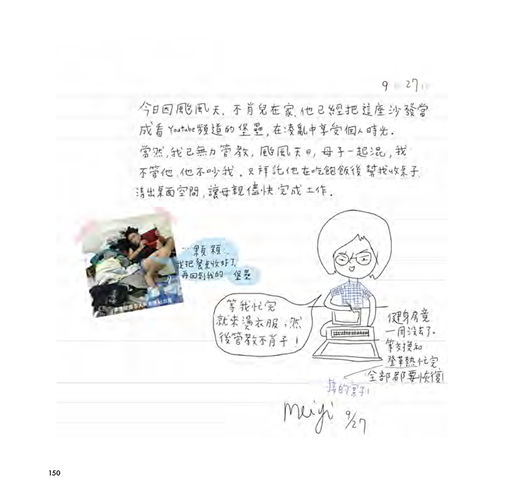 9 27
今日因颱風天,不肖兒在家,他已經把這座沙發當
成看Youtube頻道的堡壘,在凌亂中享受個人時光。
當然,我已無力管教,颱風天日,母子一起混,我
不管他,他不吵我,只拜託他在吃飽飯後幫我收桌子
清出桌面空間,讓母親儘快完成工作。
我把餐桌收好了
再回到我的 堡壘
等我忙完
就來燙衣服,然
後管教不肖子!
健身房竟
一周沒去了。
登革熱忙完,
全部都要恢復!
Meiyi 9/27
150